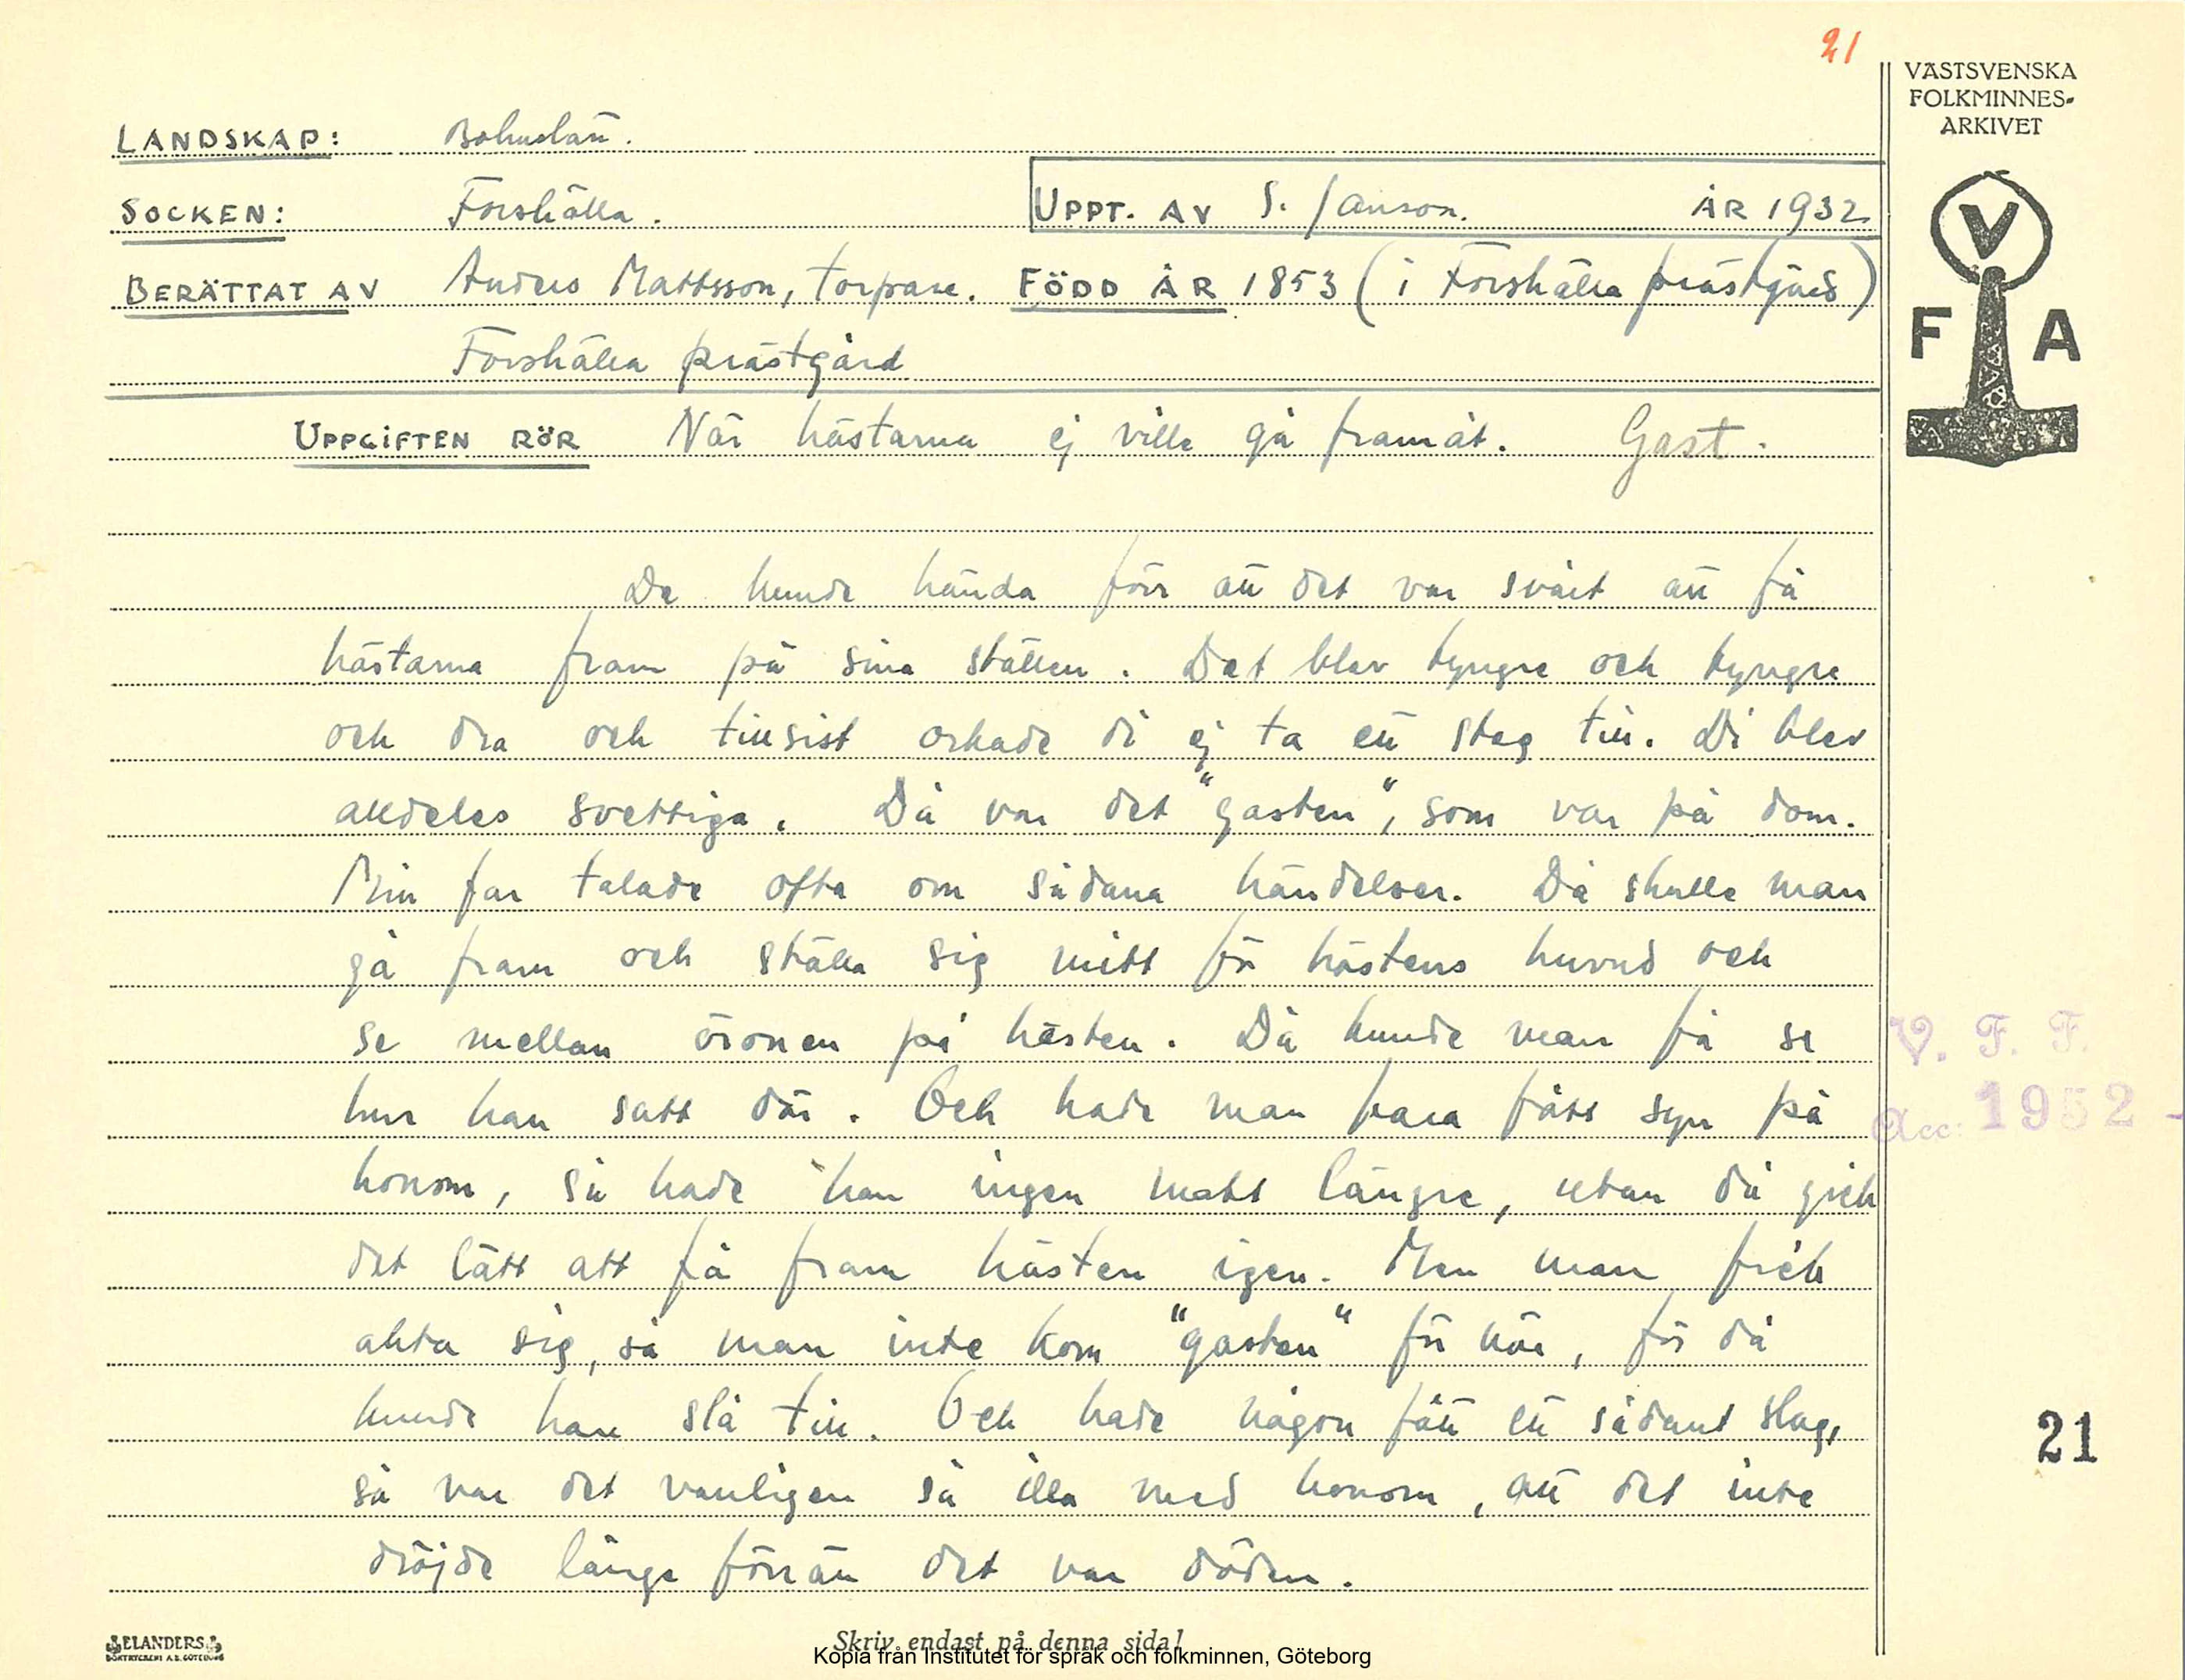 21
VÄSTSVENSKA
FOLKMINNES-
ARKIVET
LANDSKAP: Bohuslän.
SOCKEN: Forshälla. UPPT. AV S. Janson. ÅR 1932
BERÄTTAT AV Anders Mattsson, torpare. FÖDD ÅR 1853 (i Forshälla prästgård)
Forshälla prästgård
V
F A
UPPGIFTEN RÖR När hästarna ej ville gå framåt. Gast.
De kunde hända förr att det var svårt att få
hästarna fram på sina ställen. Det blev tyngre och tyngre
och dra och till sist orkade di ej ta ett steg till. Di blev
alldeles svettiga. Då var det "gasten", som var på dom.
Min far talade ofta om sådana händelser. Då skulle man
gå fram och ställa sig mitt för hästens huvud och
se mellan öronen på hästen. Då kunde man få se
hur han satt där. Och hade man bara fått syn på
honom, så hade han ingen makt längre, utan då gick
det lätt att få fram hästen igen. Men man fick
akta sig, så man inte kom "gasten" för när, för då
kunde han slå till. Och hade någon fått ett sådant slag,
så var det vanligen så illa med honom, att det inte
dröjde länge förrän det var döden.
V. F. F.
Acc: 1952 -
21
ELANDERS
BOKTRYCKERI A.B. GÖTEBORG
Skriv endast på denna sida!
Kopia från Institutet för språk och folkminnen, Göteborg